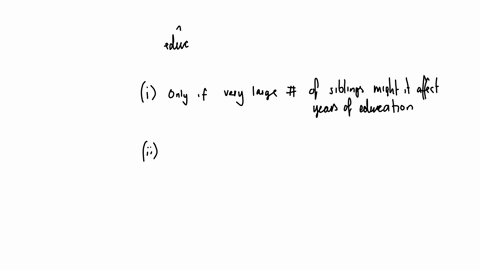 ^
educ
(i) Only if very large # of siblings might it affect
years of education
(ii)